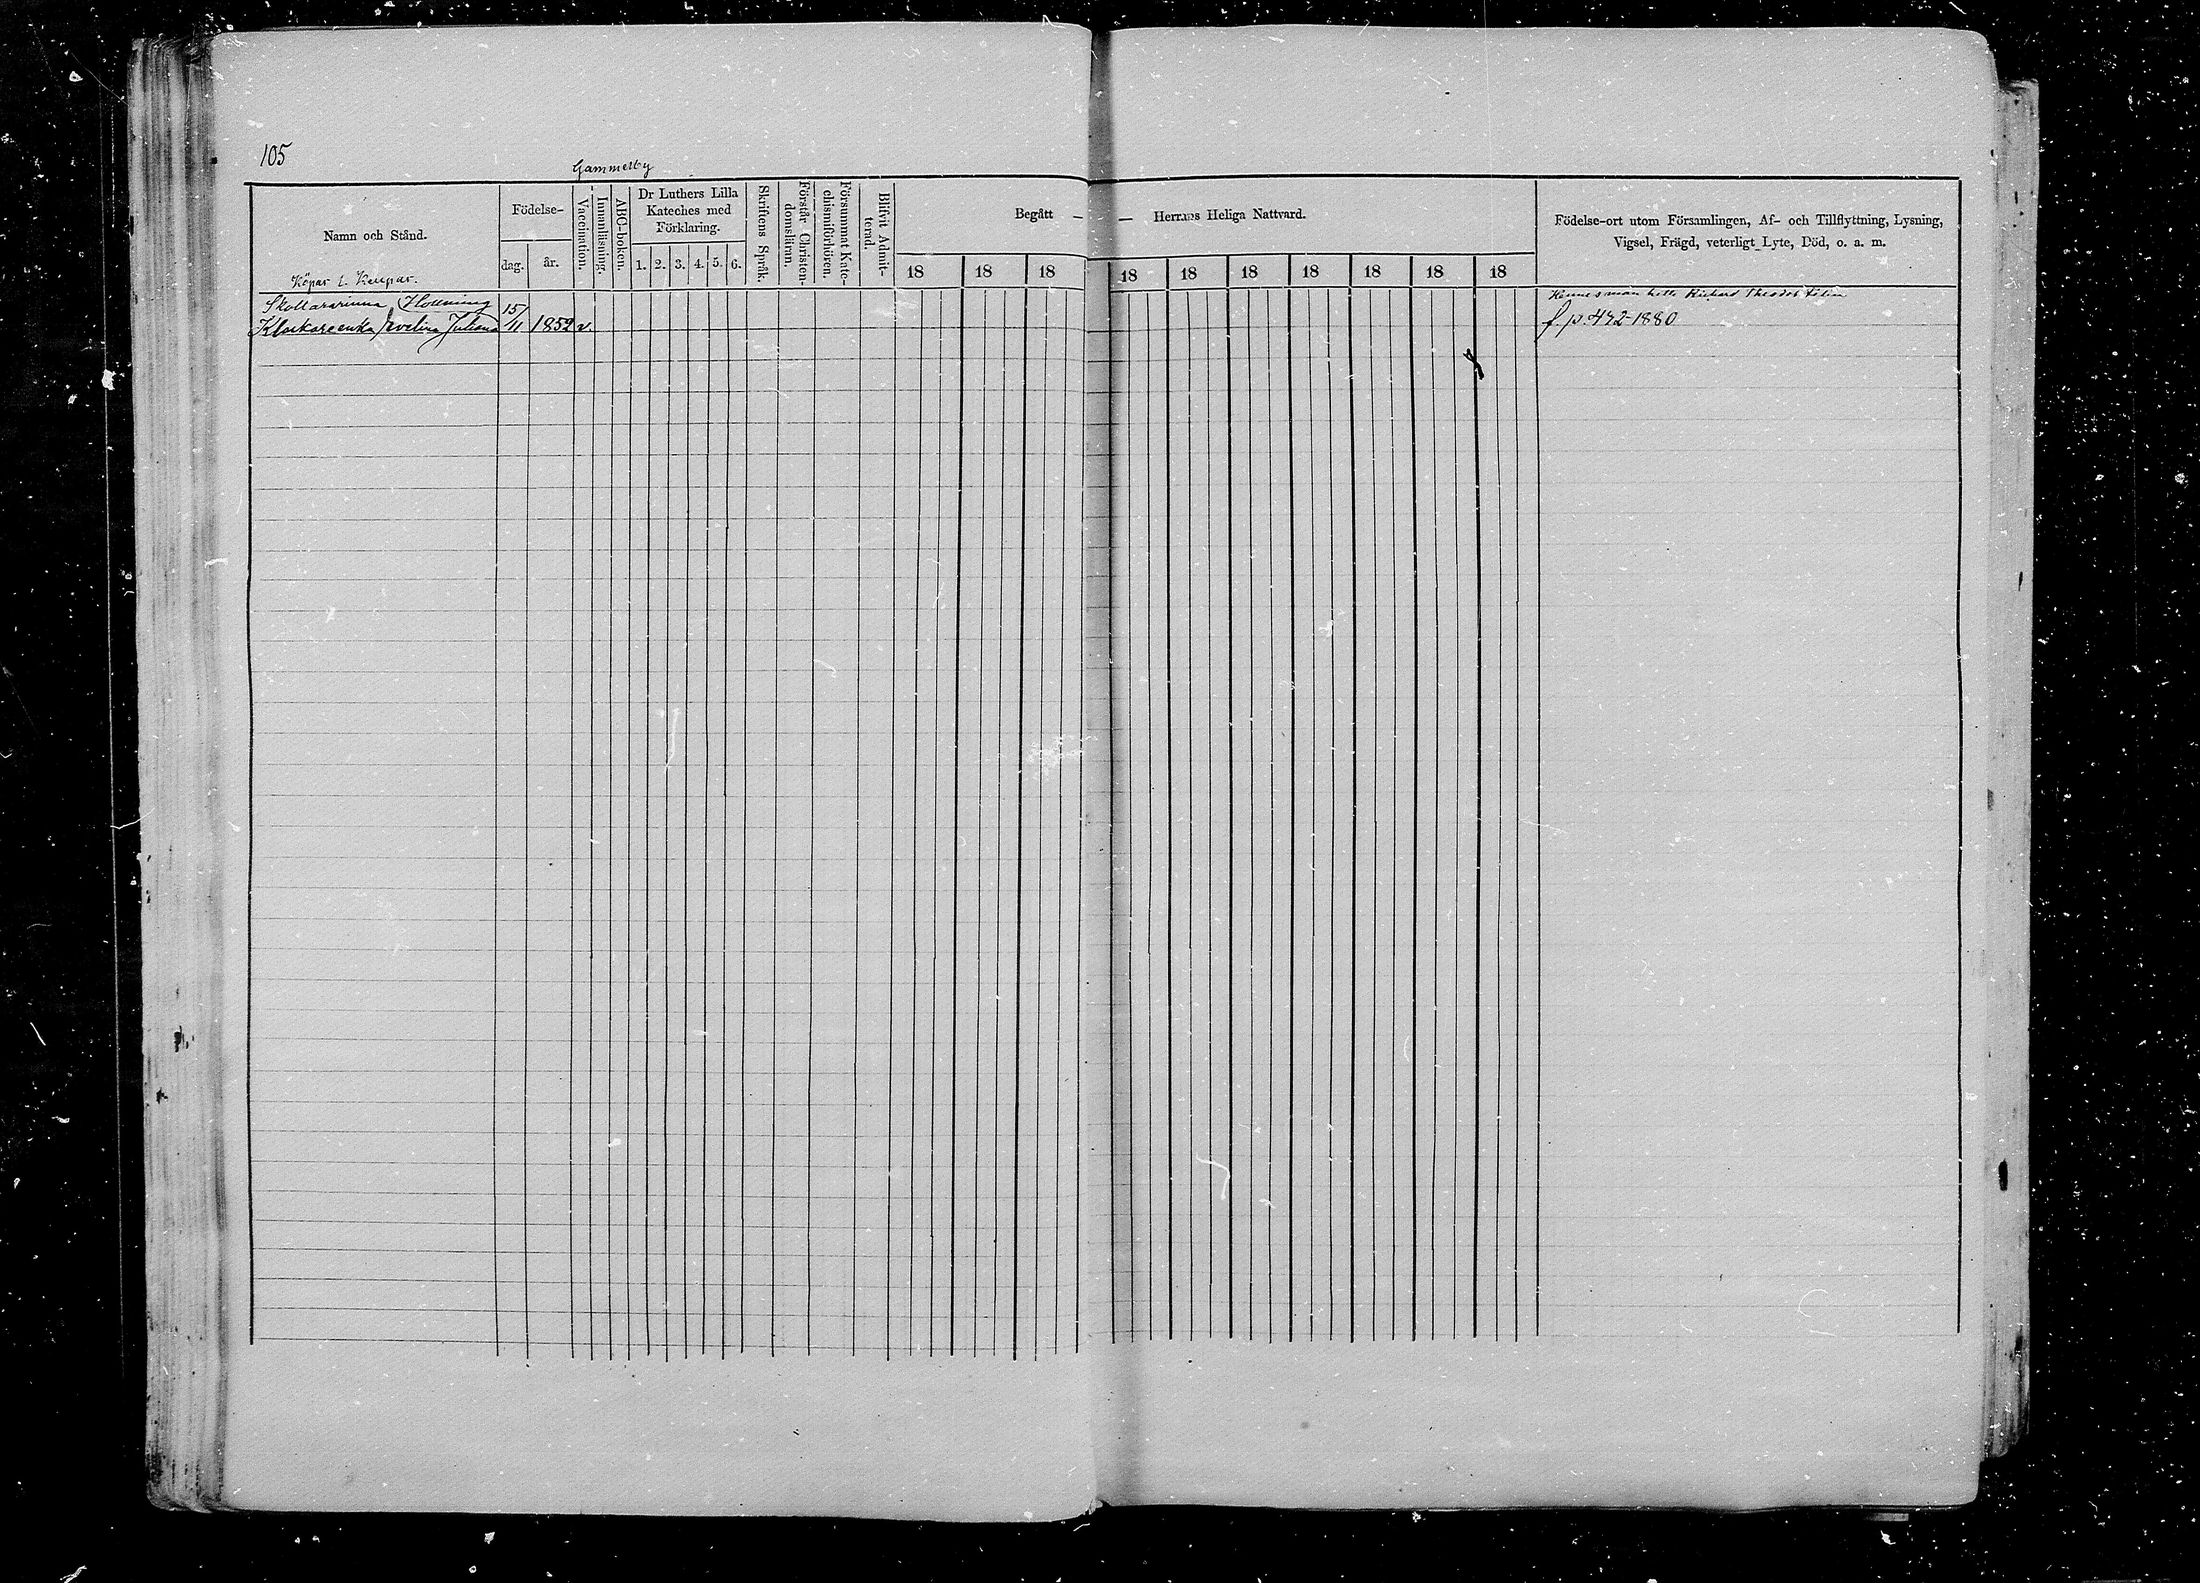 105
Gammelby
Namn och Stånd.
Födelse-
dag.
år.
Vaccination.
Innanläsning.
ABC-boken.
Dr Luthers Lilla
Kateches med
Förklaring.
1. 2. 3. 4. 5. 6.
Skriftens Språk.
Förstår Christen-
domsläran.
Försummat Kate-
chismiförhören.
Blifvit Admit-
terad.
Begått — — Herrans Heliga Nattvard.
18 18 18 18 18 18 18 18 18 18
Födelse-ort utom Församlingen, Af- och Tillflyttning, Lysning,
Vigsel, Frägd, veterligt Lyte, Död, o. a. m.
Köpar l.
Hennes man hette Richard Theodor
15/
Juliana 11 1852 v. f. p. 472-1880